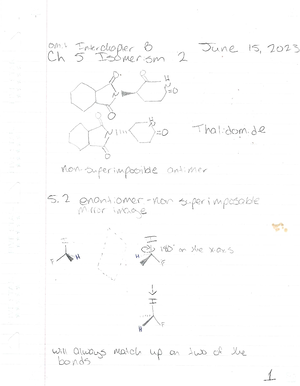 Interchapter B June 15, 2023
Ch 5 Isomerism 2
O
H
N
O
O
O
H
N
O
O
Thalidomide
non superimposible
5.2 enantiomer - non superimposible
mirror image
I
H
F
I
180° on the x axis
H
F
I
H
F
will always match up on two of the
bonds
1